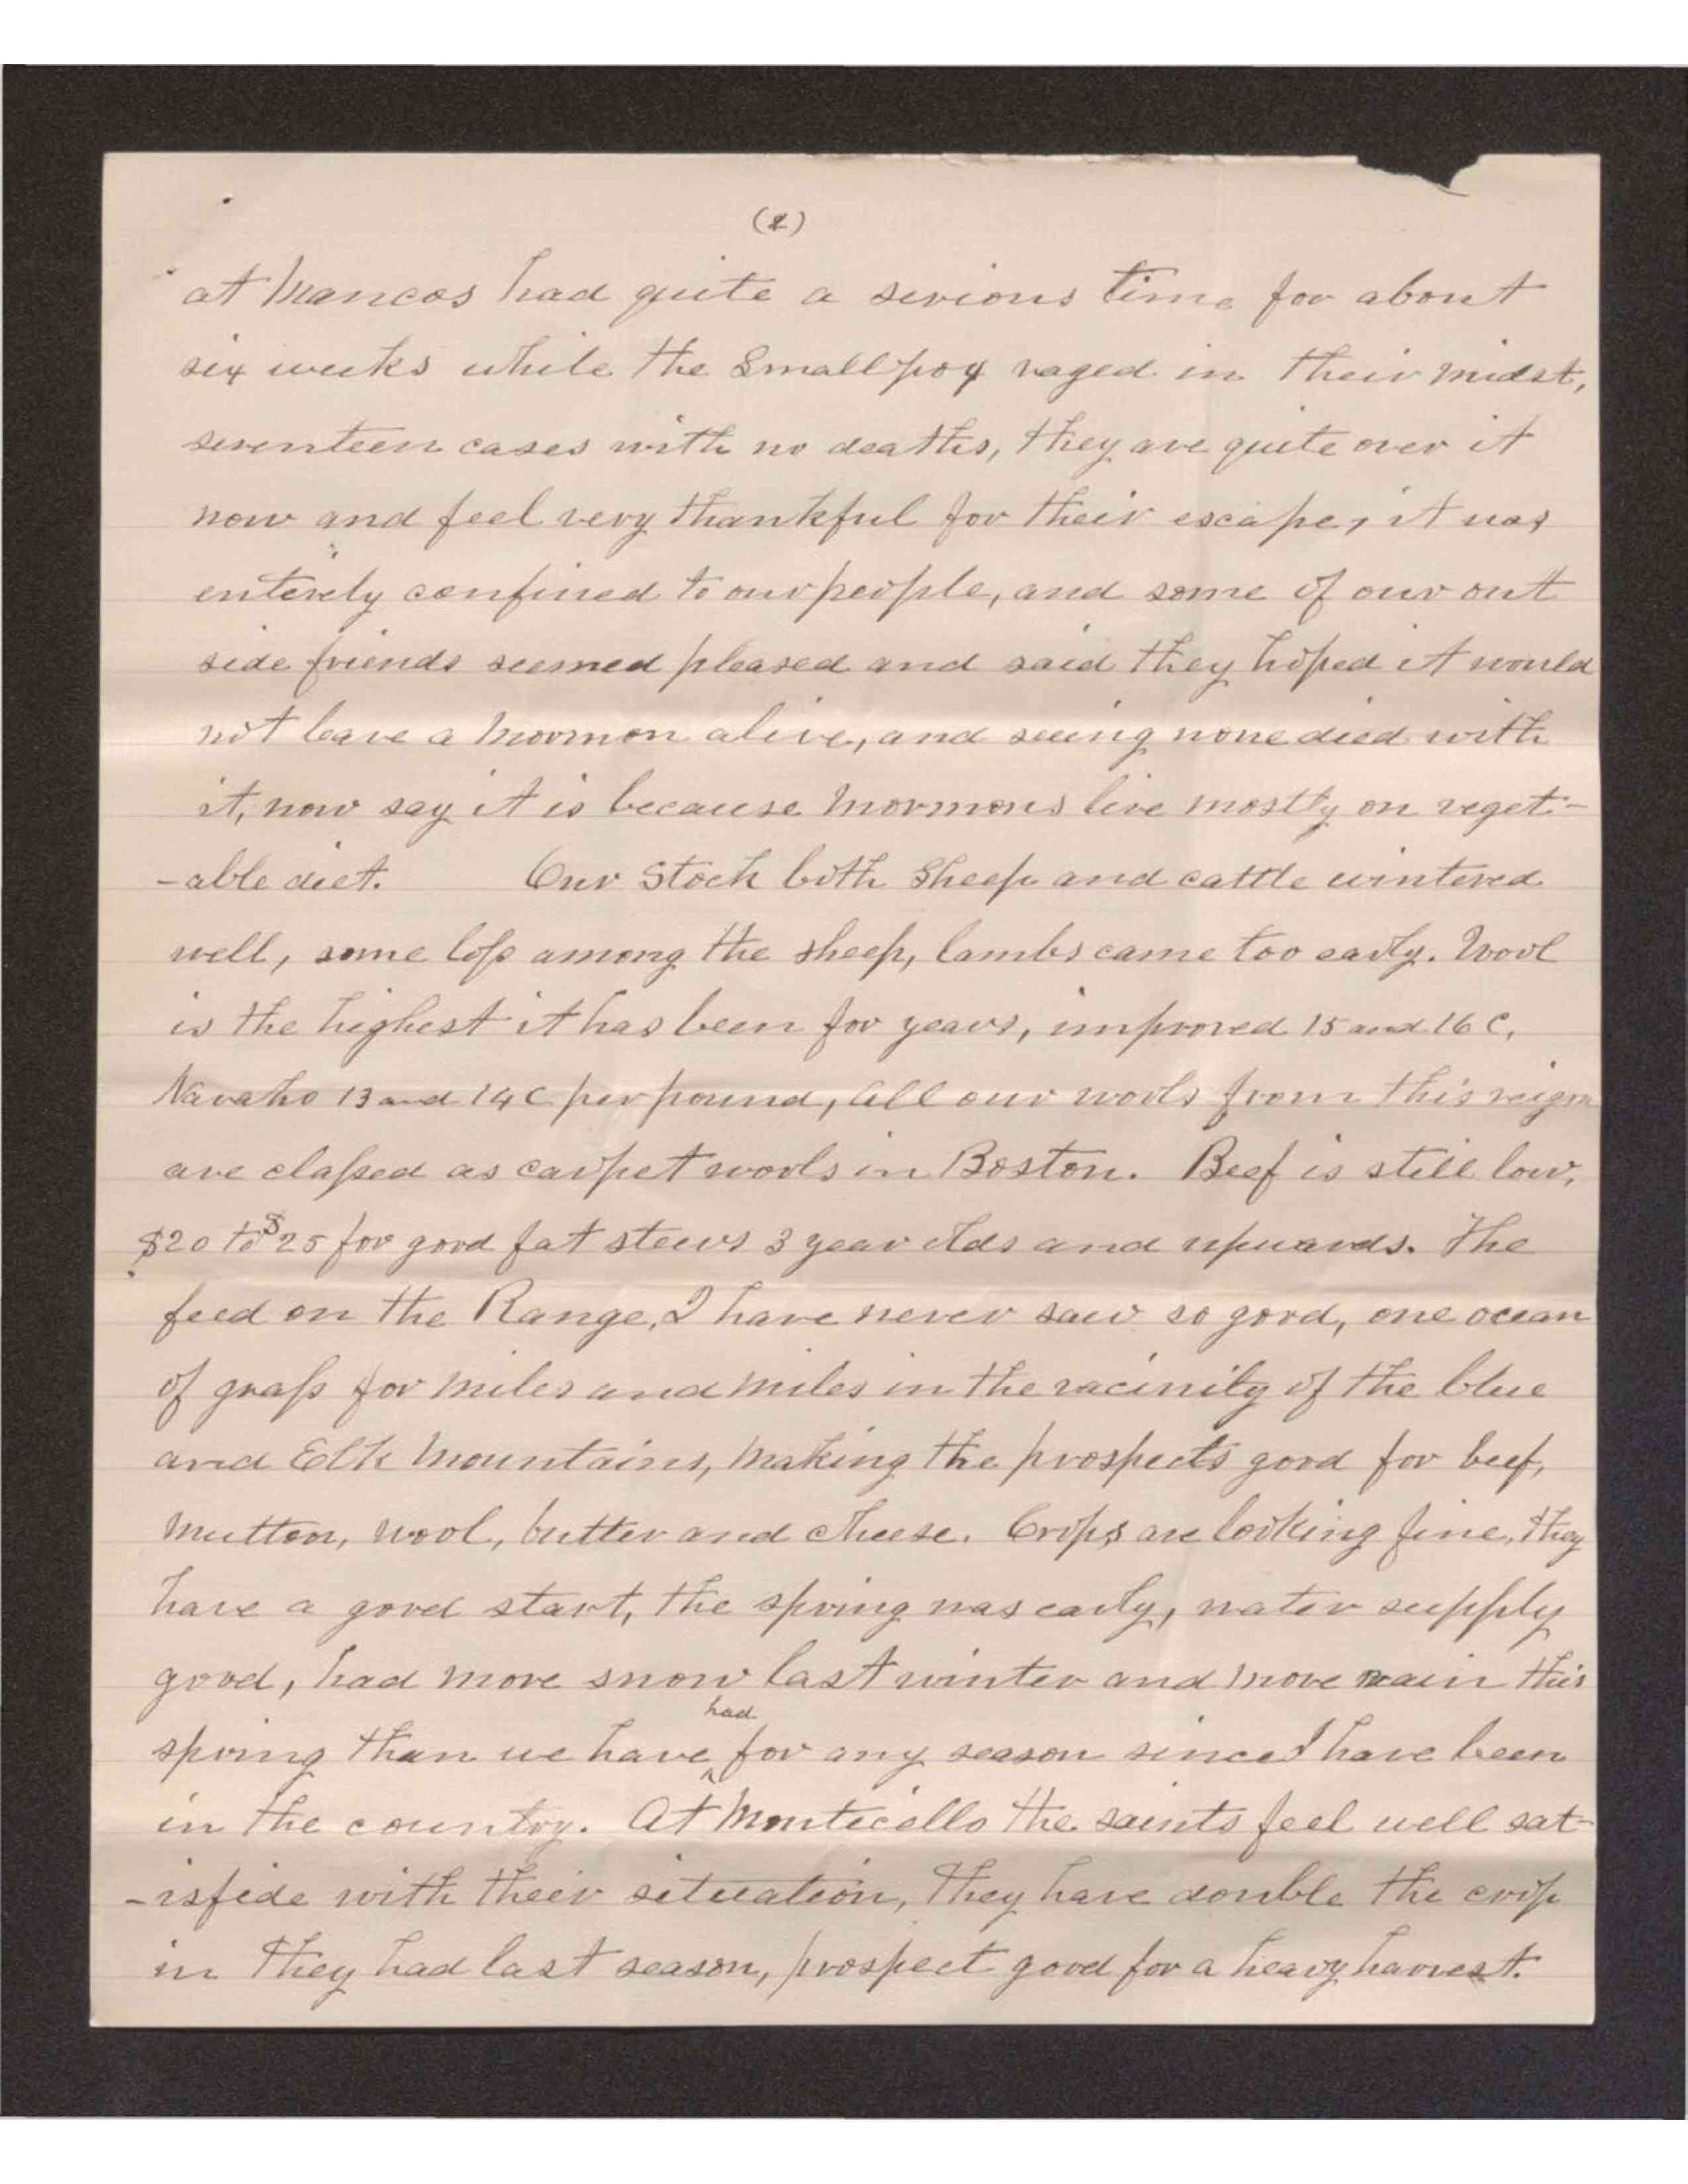 (2)
at Mancos had quite a serious time for about
six weeks while the Smallpox raged in their midst,
seventeen cases with no deaths, they are quite over it
now and feel very thankful for their escape, it was
entirely confined to our people, and some of our out
side friends seemed pleased and said they hoped it would
not leave a Mormon alive, and seeing none died with
it, now say it is because Mormons live mostly on veget-
-able diet. Our Stock both Sheep and cattle wintered
well, some loss among the sheep, lambs came too early. Wool
is the highest it has been for years, improved 15 and 16 c,
Navaho 13 and 14 c per pound, all our wools from this reigon
are classed as carpet wools in Boston. Beef is still low,
$20 to $25 for good fat steers 3 year olds and upwards. The
feed on the Range, I have never saw so good, one ocean
of grass for miles and miles in the vacinity of the blue
and Elk Mountains, making the prospects good for beef,
mutton, wool, butter and cheese. Crops are looking fine, they
have a good start, the spring was early, water supply
good, had more snow last winter and more rain this
spring than we have had for any season since I have been
in the country. At Monticello the saints feel well sat-
-isfide with their situation, they have double the crop
in they had last season, prospect good for a heavy harvest.